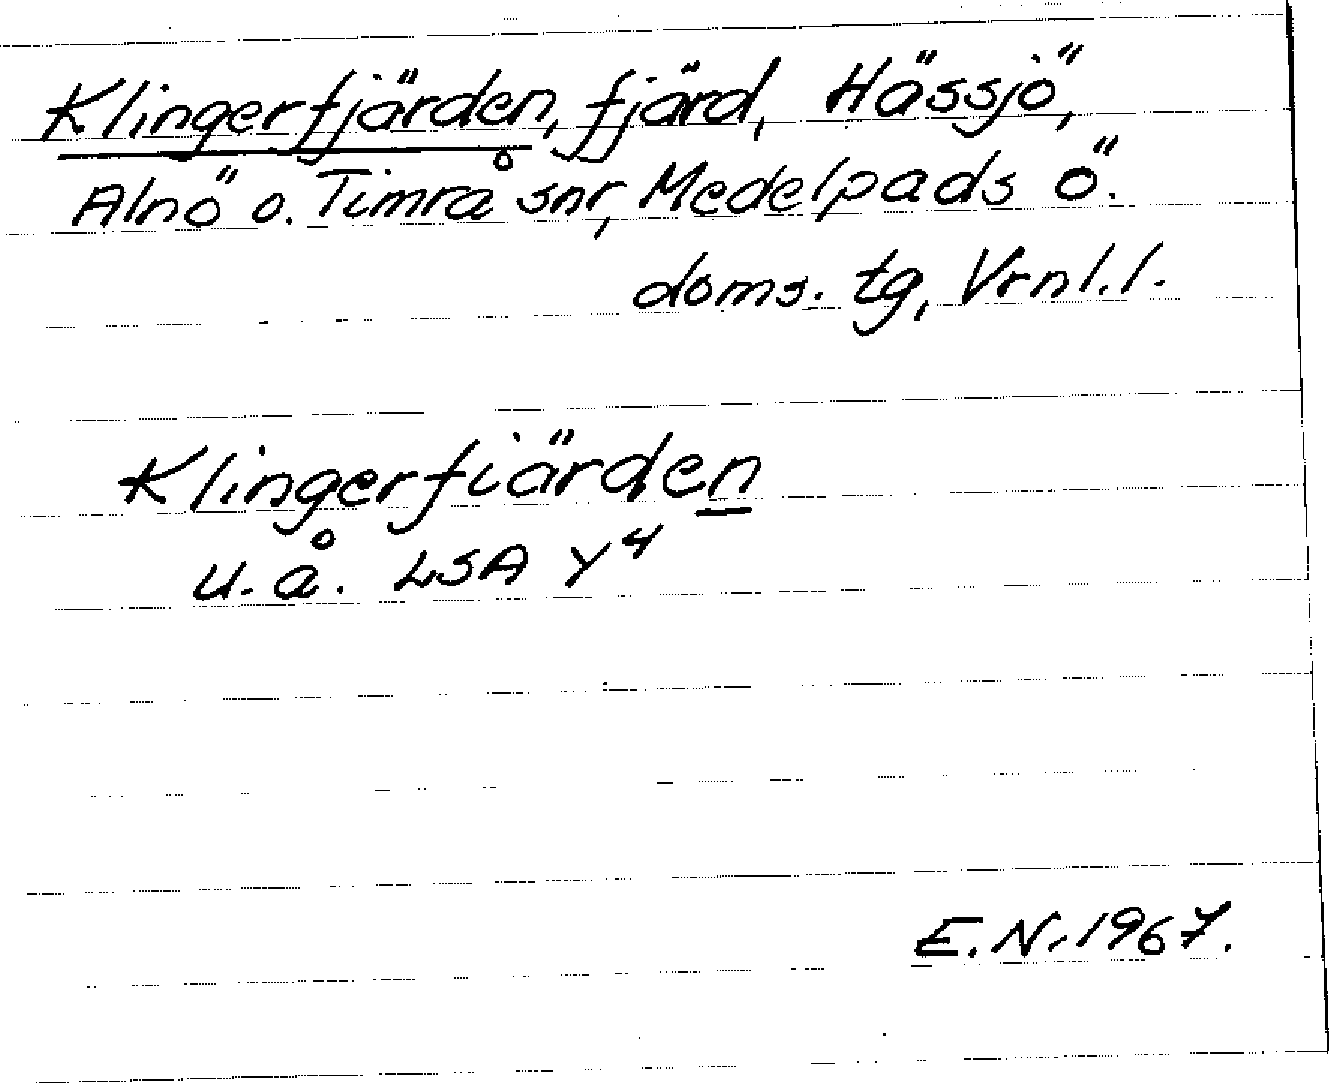 Klingerfjärden, fjärd, Hässjö,
Alnö o. Timrå snr, Medelpads ö.
doms. tg, Vrnl. l.
Klingerfiärden
u. å. LSA Y4
E. N. 1967.